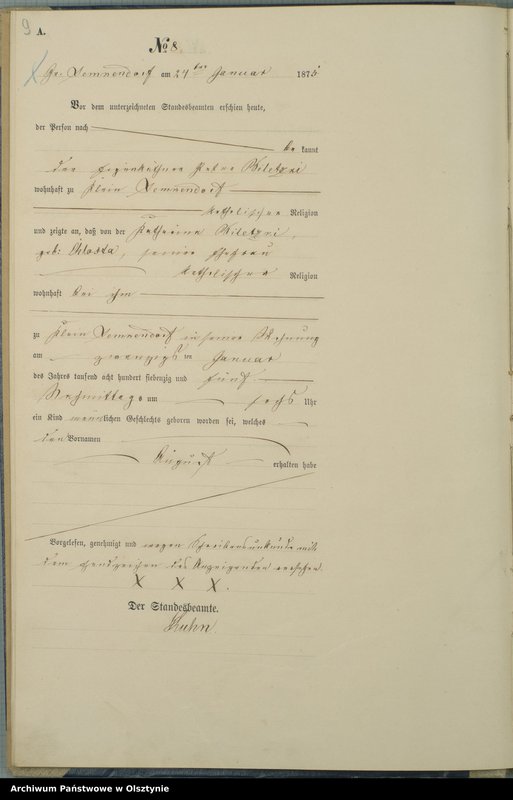 9 A.
No 8.
Gr. Lemnendorf am 24ten Januar 1875
Vor dem unterzeichneten Standesbeamten erschien heute,
der Person nach
be kannt
der Eigenkäthner
wohnhaft zu Klein Lemnendorf
katholischer Religion
und zeigte an, daß von der Katharina
geb: Chlosta, seiner Ehefrau
katholischer Religion
wohnhaft bei ihm
zu Klein Lemnendorf in seiner Wohnung
am zwanzigsten Januar
des Jahres tausend acht hundert siebenzig und fünf
Nachmittags um sechs Uhr
ein Kind männlichen Geschlechts geboren worden sei, welches
den Vornamen
August erhalten habe
Vorgelesen, genehmigt und wegen Schreibensunkunde mit
dem Handzeichen des Anzeigenden versehen.
X X X.
Der Standesbeamte.
Kuhn.
Archiwum Państwowe w Olsztynie